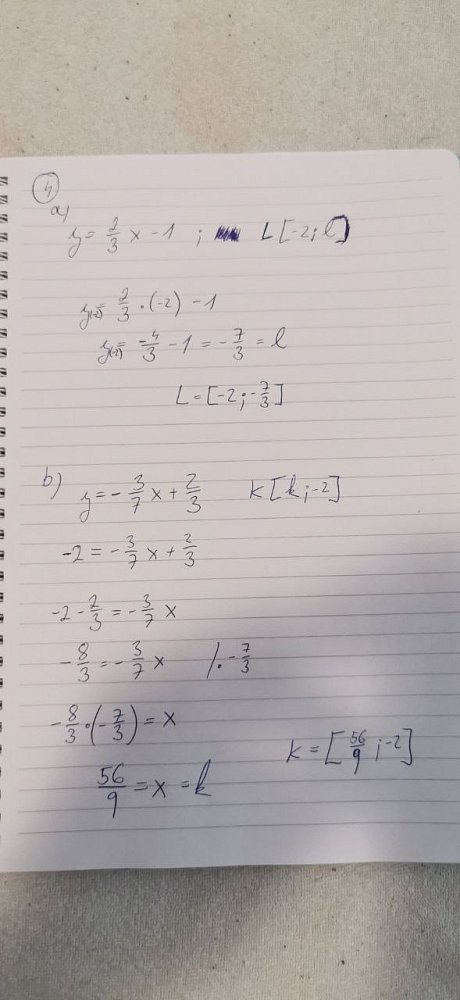 4
a)
y = 2/3 x - 1 ; L [-2; l]
y(-2) = 2/3 · (-2) - 1
y(-2) = -4/3 - 1 = -7/3 = l
L = [-2; -7/3]
b) y = -3/7 x + 2/3 K [k; -2]
-2 = -3/7 x + 2/3
-2 - 2/3 = -3/7 x
-8/3 = -3/7 x /· -7/3
-8/3 · (-7/3) = x
56/9 = x = k
K = [56/9; -2]